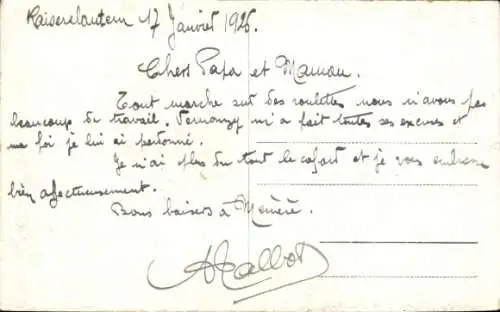 Kaiserslautern 17 Janvier 1926.
Chers Papa et Maman.
Tout marche sur des roulettes nous n'avons pas
beaucoup de travail. m'a fait toutes ses excuses et
ma foi je lui ai pardonné.
Je n'ai plus du tout le cafart et je vous embrasse
bien affectueusement.
Bons baisers à Mémère.
ATalbot